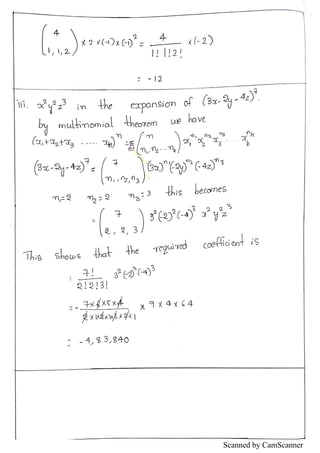 ( 4
1, 1, 2 ) x 2 x (-1) x (-1)² = 4 / 1! 1! 2! x (-2)
= -12
iii. x²y²z³ in the expansion of (3x-2y-4z)⁷.
by multinomial theorem we have
(x₁+x₂+x₃ ..... xₖ)ⁿ = Σ ( n
n₁, n₂ .. nₖ ) x₁ⁿ¹ x₂ⁿ² x₃ⁿ³ .... xₖⁿᵏ
(3x-2y-4z)⁷ = ( 7
n₁, n₂, n₃ ) (3x)ⁿ¹ (-2y)ⁿ² (-4z)ⁿ³
n₁=2 n₂=2 n₃=3 this becomes
= ( 7
2, 2, 3 ) 3² (-2)² (-4)³ x² y² z³
This shows that the required coefficient is
= 7! / 2! 2! 3! 3² (-2)² (-4)³
= - 7 x 6 x 5 x 4 / 2 x 1 x 2 x 1 x 3 x 2 x 1 x 9 x 4 x 64
= - 4,83,840
Scanned by CamScanner